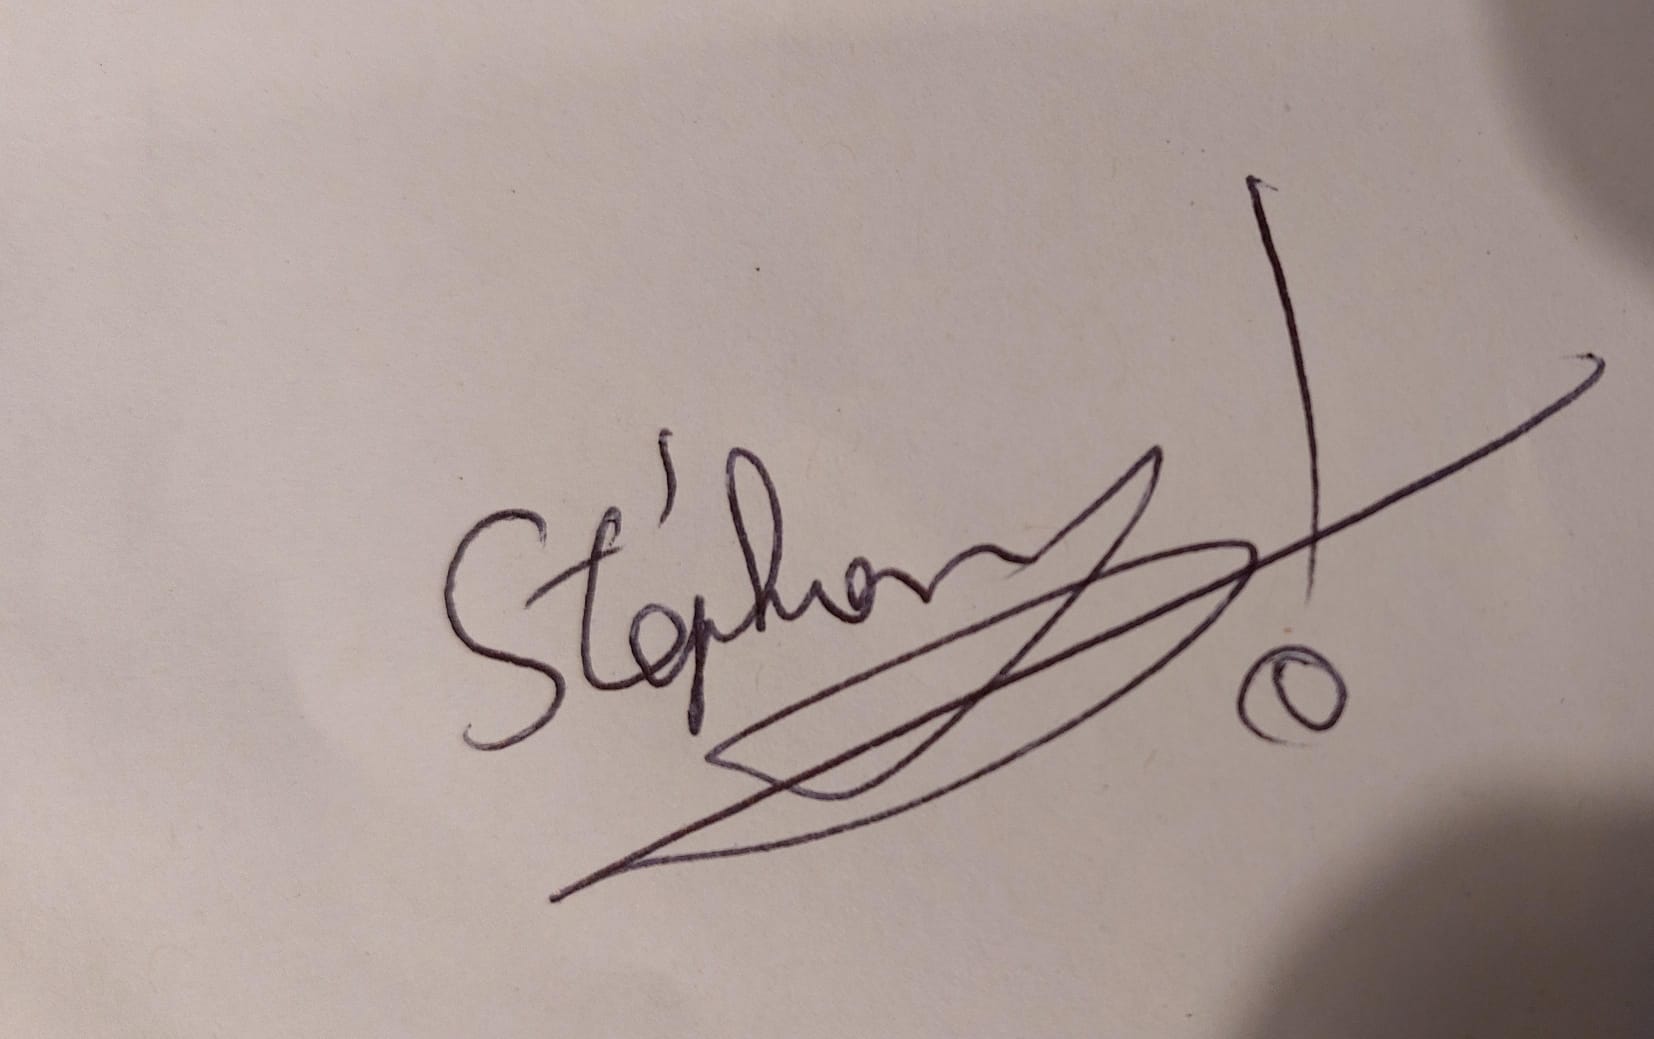 Stéphany!